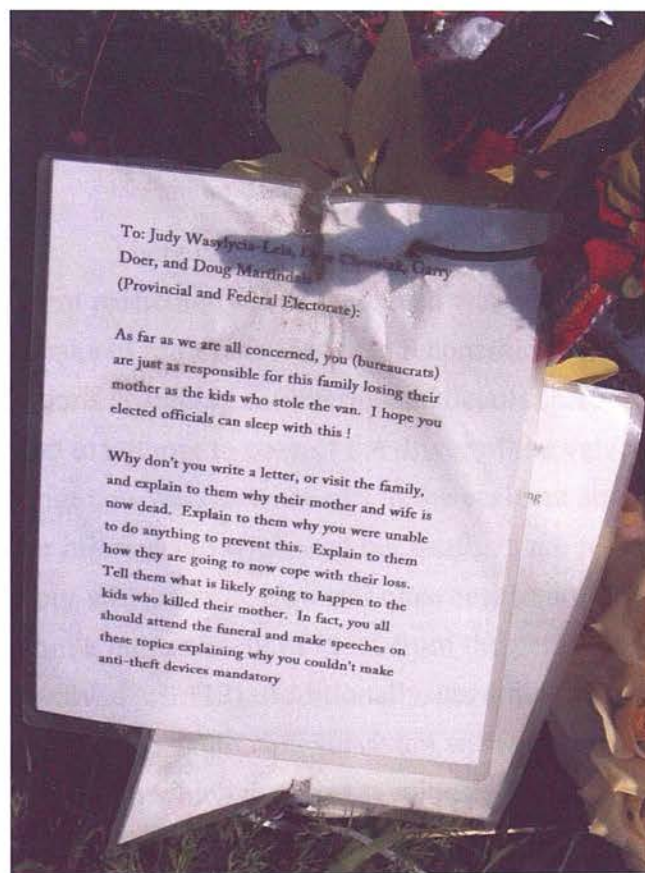 To: Judy Wasylycia-Leis, Garry
Doer, and Doug Martindale
(Provincial and Federal Electorate):
As far as we are all concerned, you (bureaucrats)
are just as responsible for this family losing their
mother as the kids who stole the van. I hope you
elected officials can sleep with this !
Why don't you write a letter, or visit the family,
and explain to them why their mother and wife is
now dead. Explain to them why you were unable
to do anything to prevent this. Explain to them
how they are going to now cope with their loss.
Tell them what is likely going to happen to the
kids who killed their mother. In fact, you all
should attend the funeral and make speeches on
these topics explaining why you couldn't make
anti-theft devices mandatory